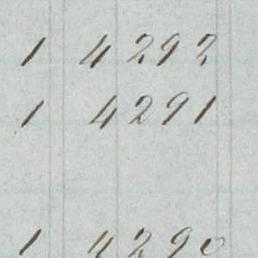 1 4292
1 4291
1 4290